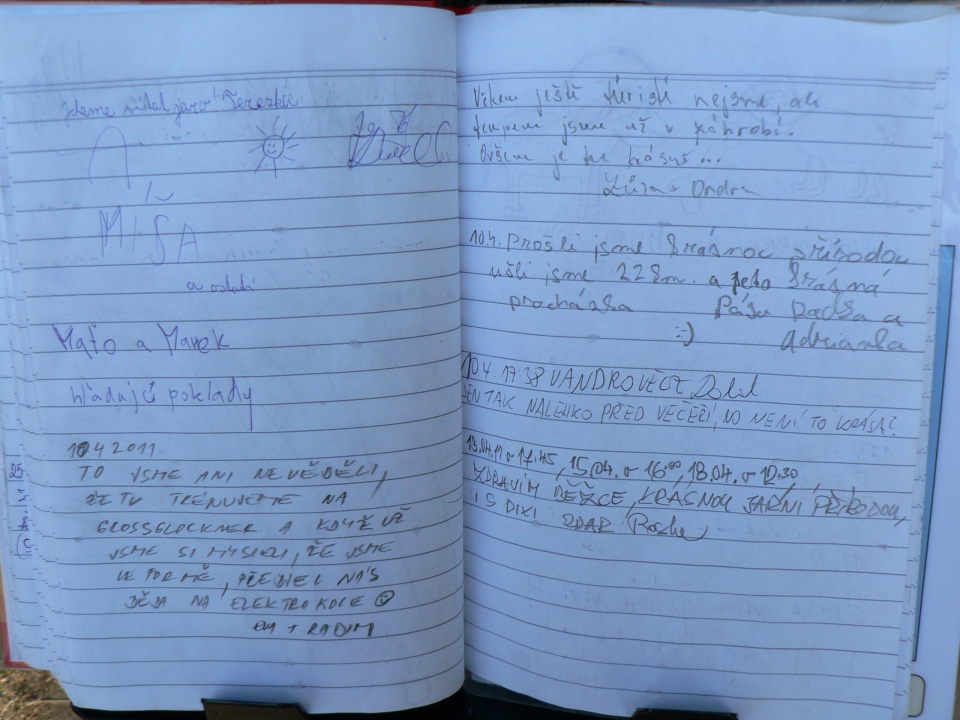 Jdeme vítat jaro Terezka
MÍŠA
a ostatní
Maťo a Marek
hľadajú poklady
10 4 2011
TO JSME ANI NEVĚDĚLI,
ŽE TU TRÉNUJEME NA
GLOSSGLOCKNER. A KDYŽ UŽ
JSME SI MYSLELI, ŽE JSME
VE FORMĚ, PŘEDJEL NÁS
DĚDA NA ELEKTROKOLE
EVA + RADIM
25
Věkem ještě turisti nejsme, ale
tempem jsme už v záhrobí.
Ovšem je tu krásně...
Zůza + Ondra
10.4. Prošli jsme krásnou přírodou
ušli jsme 22km. a je to krásná
procházka Pája Radka a
:-) Adrianka
10.4. 17:38 VANDROVĚCZ
JEN TAK NALEHKO PŘED VEČEŘÍ, NO NENÍ TO KRÁSA?
13.04.11 v 17.45, 15.04. v 16.00, 18.04. v 12.30
ZDRAVÍM BĚŽCE, KRÁSNOU JARNÍ PŘÍRODOU,
I S DIXI ZDAR